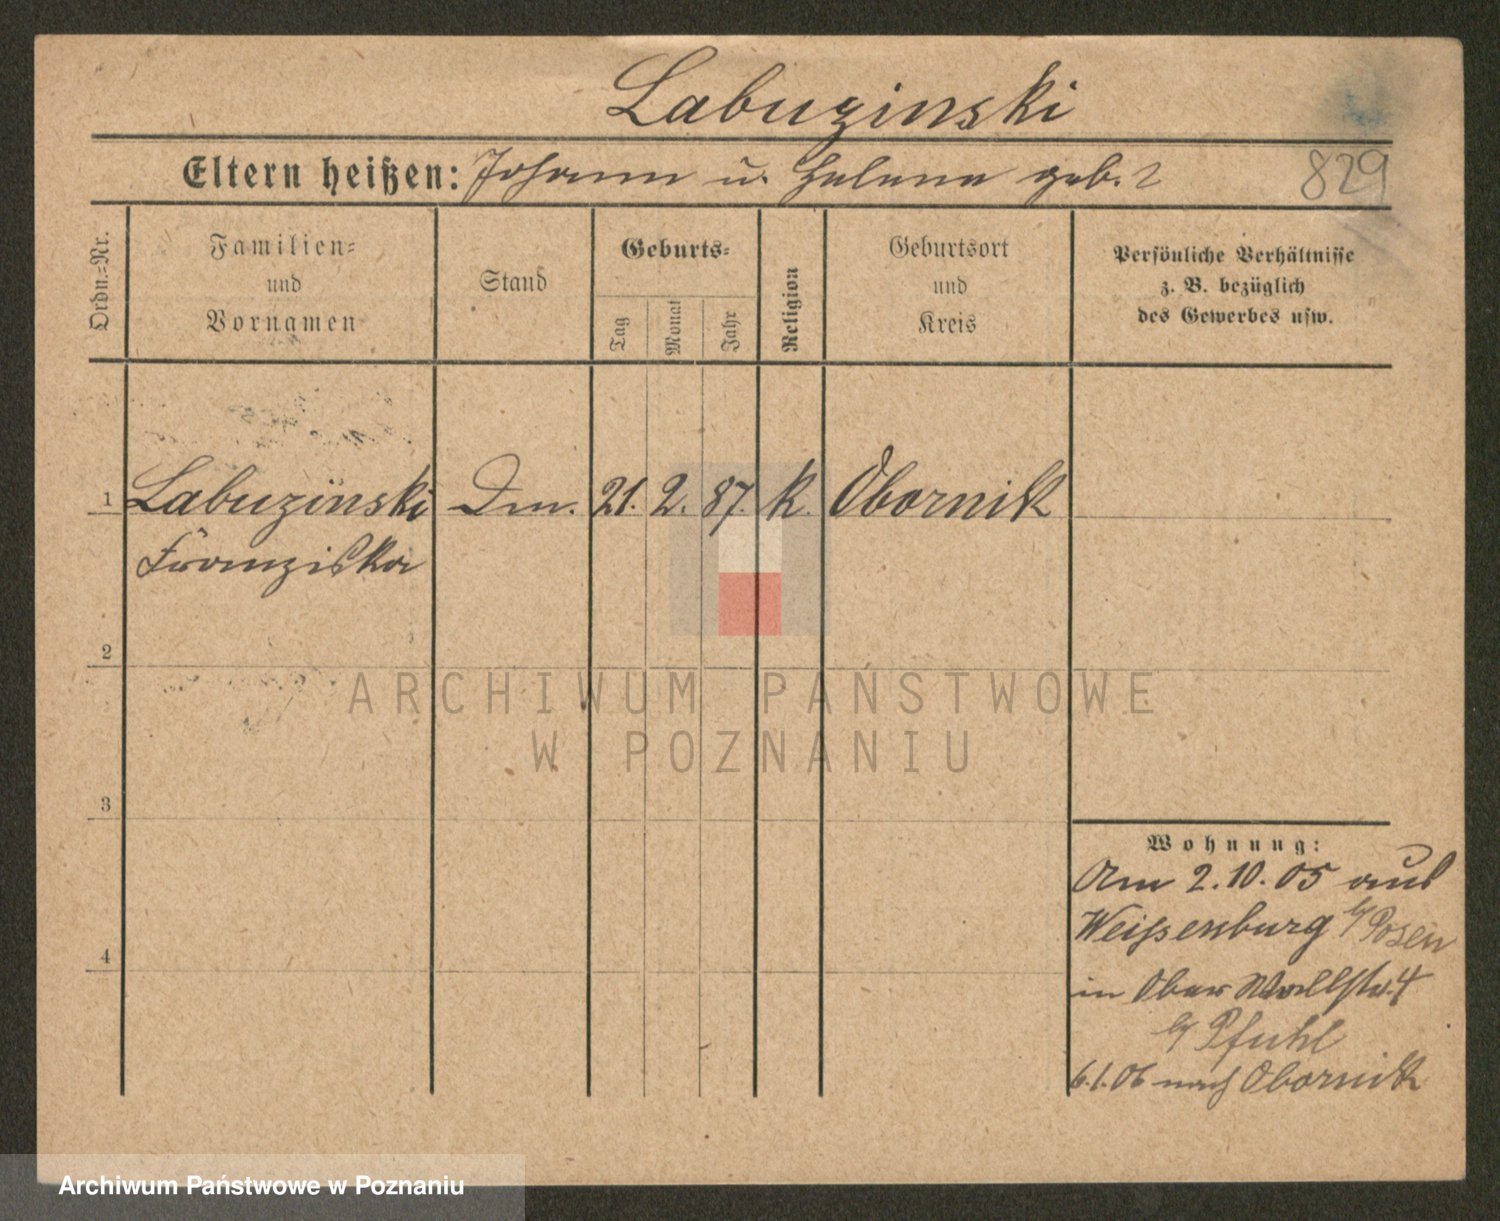 Labuzinski
Eltern heißen: Johann u. Helene geb. ?
829
Ordn.=Nr.
Familien=
und
Vornamen
Stand
Geburts=
Tag
Monat
Jahr
Religion
Geburtsort
und
Kreis
Persönliche Verhältnisse
z. B. bezüglich
des Gewerbes usw.
1 Labuzinski 21. 2. 87. k. Obornik
Franziska
2
ARCHIWUM PAŃSTWOWE
W POZNANIU
3
Wohnung:
Am 2.10.05 aus
Weissenburg b/ Posen
4
in Ober Wallstr. 4
b/ Pfuhl
6.1.06 nach Obornik
Archiwum Państwowe w Poznaniu